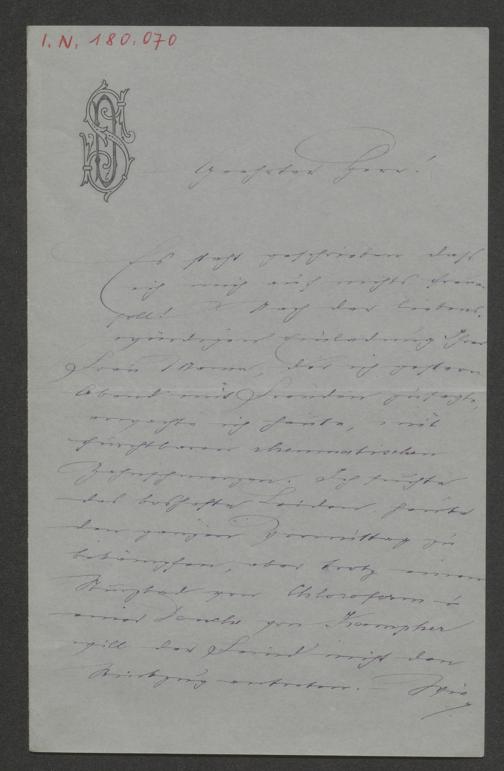 I. N. 180.070
Geehrter Herr!
Es steht geschrieben daß
ich mich auf nichts freuen
soll! Nach der liebens-
würdigen Einladung Ihrer
Frau Mama, der ich gestern
Abend mit Freuden zusagte,
erwachte ich heute, mit
furchtbaren rheumatischen
Zahnschmerzen. Ich suchte
das boshafte Leiden heute
den ganzen Vormittag zu
bekämpfen, aber trotz einem
von Chloroform u
einer Douche von Kampher
will der Feind nicht den
Rückzug antreten. – Wie